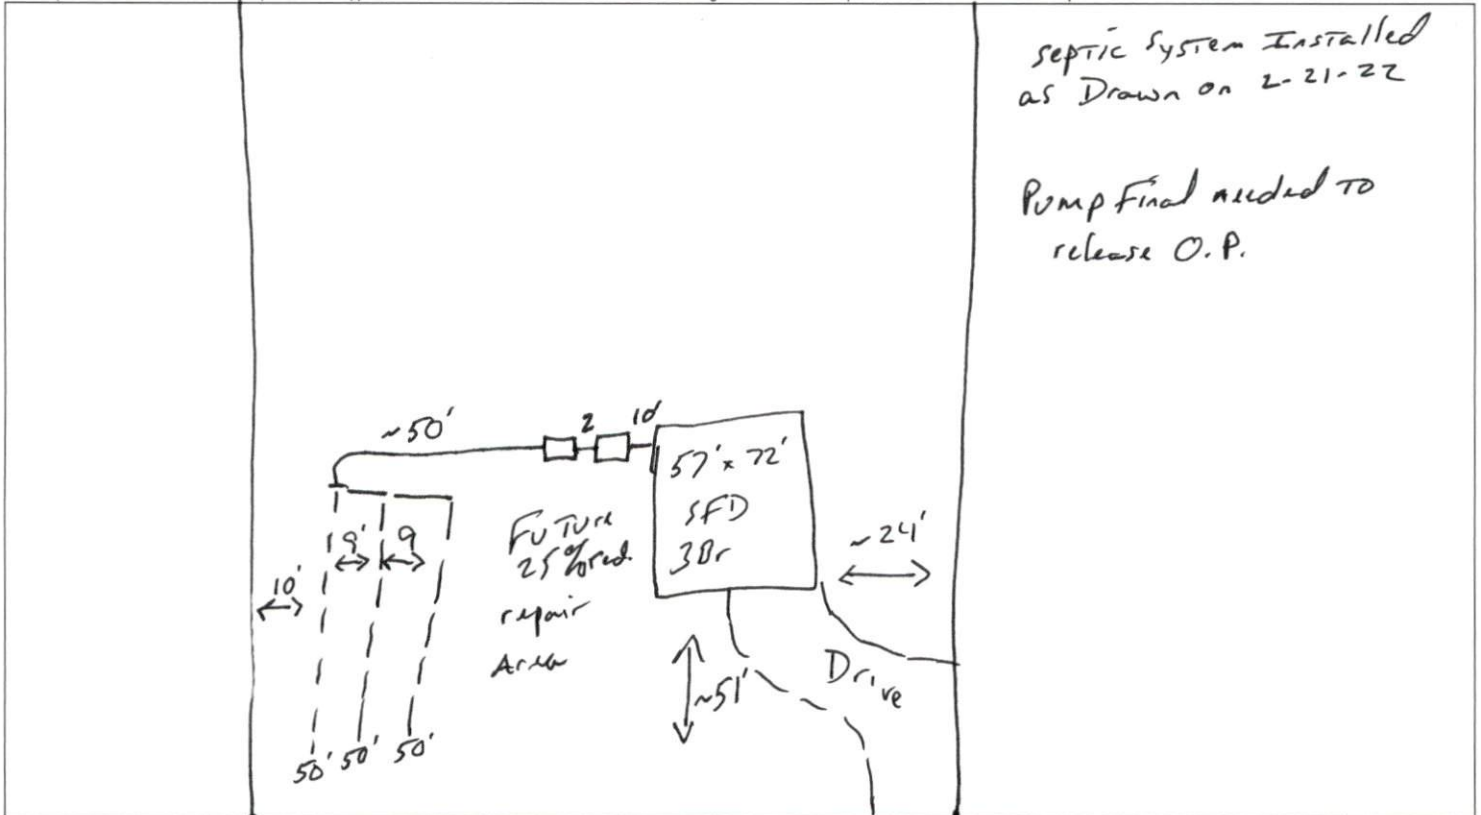 Septic System Installed
as Drawn on 2-21-22
Pump Final needed To
release O.P.
~50'
2
10'
57' x 72'
SFD
3Br
Future
25% red.
repair
Area
9'
9
10'
~24'
~51'
Drive
50'
50'
50'